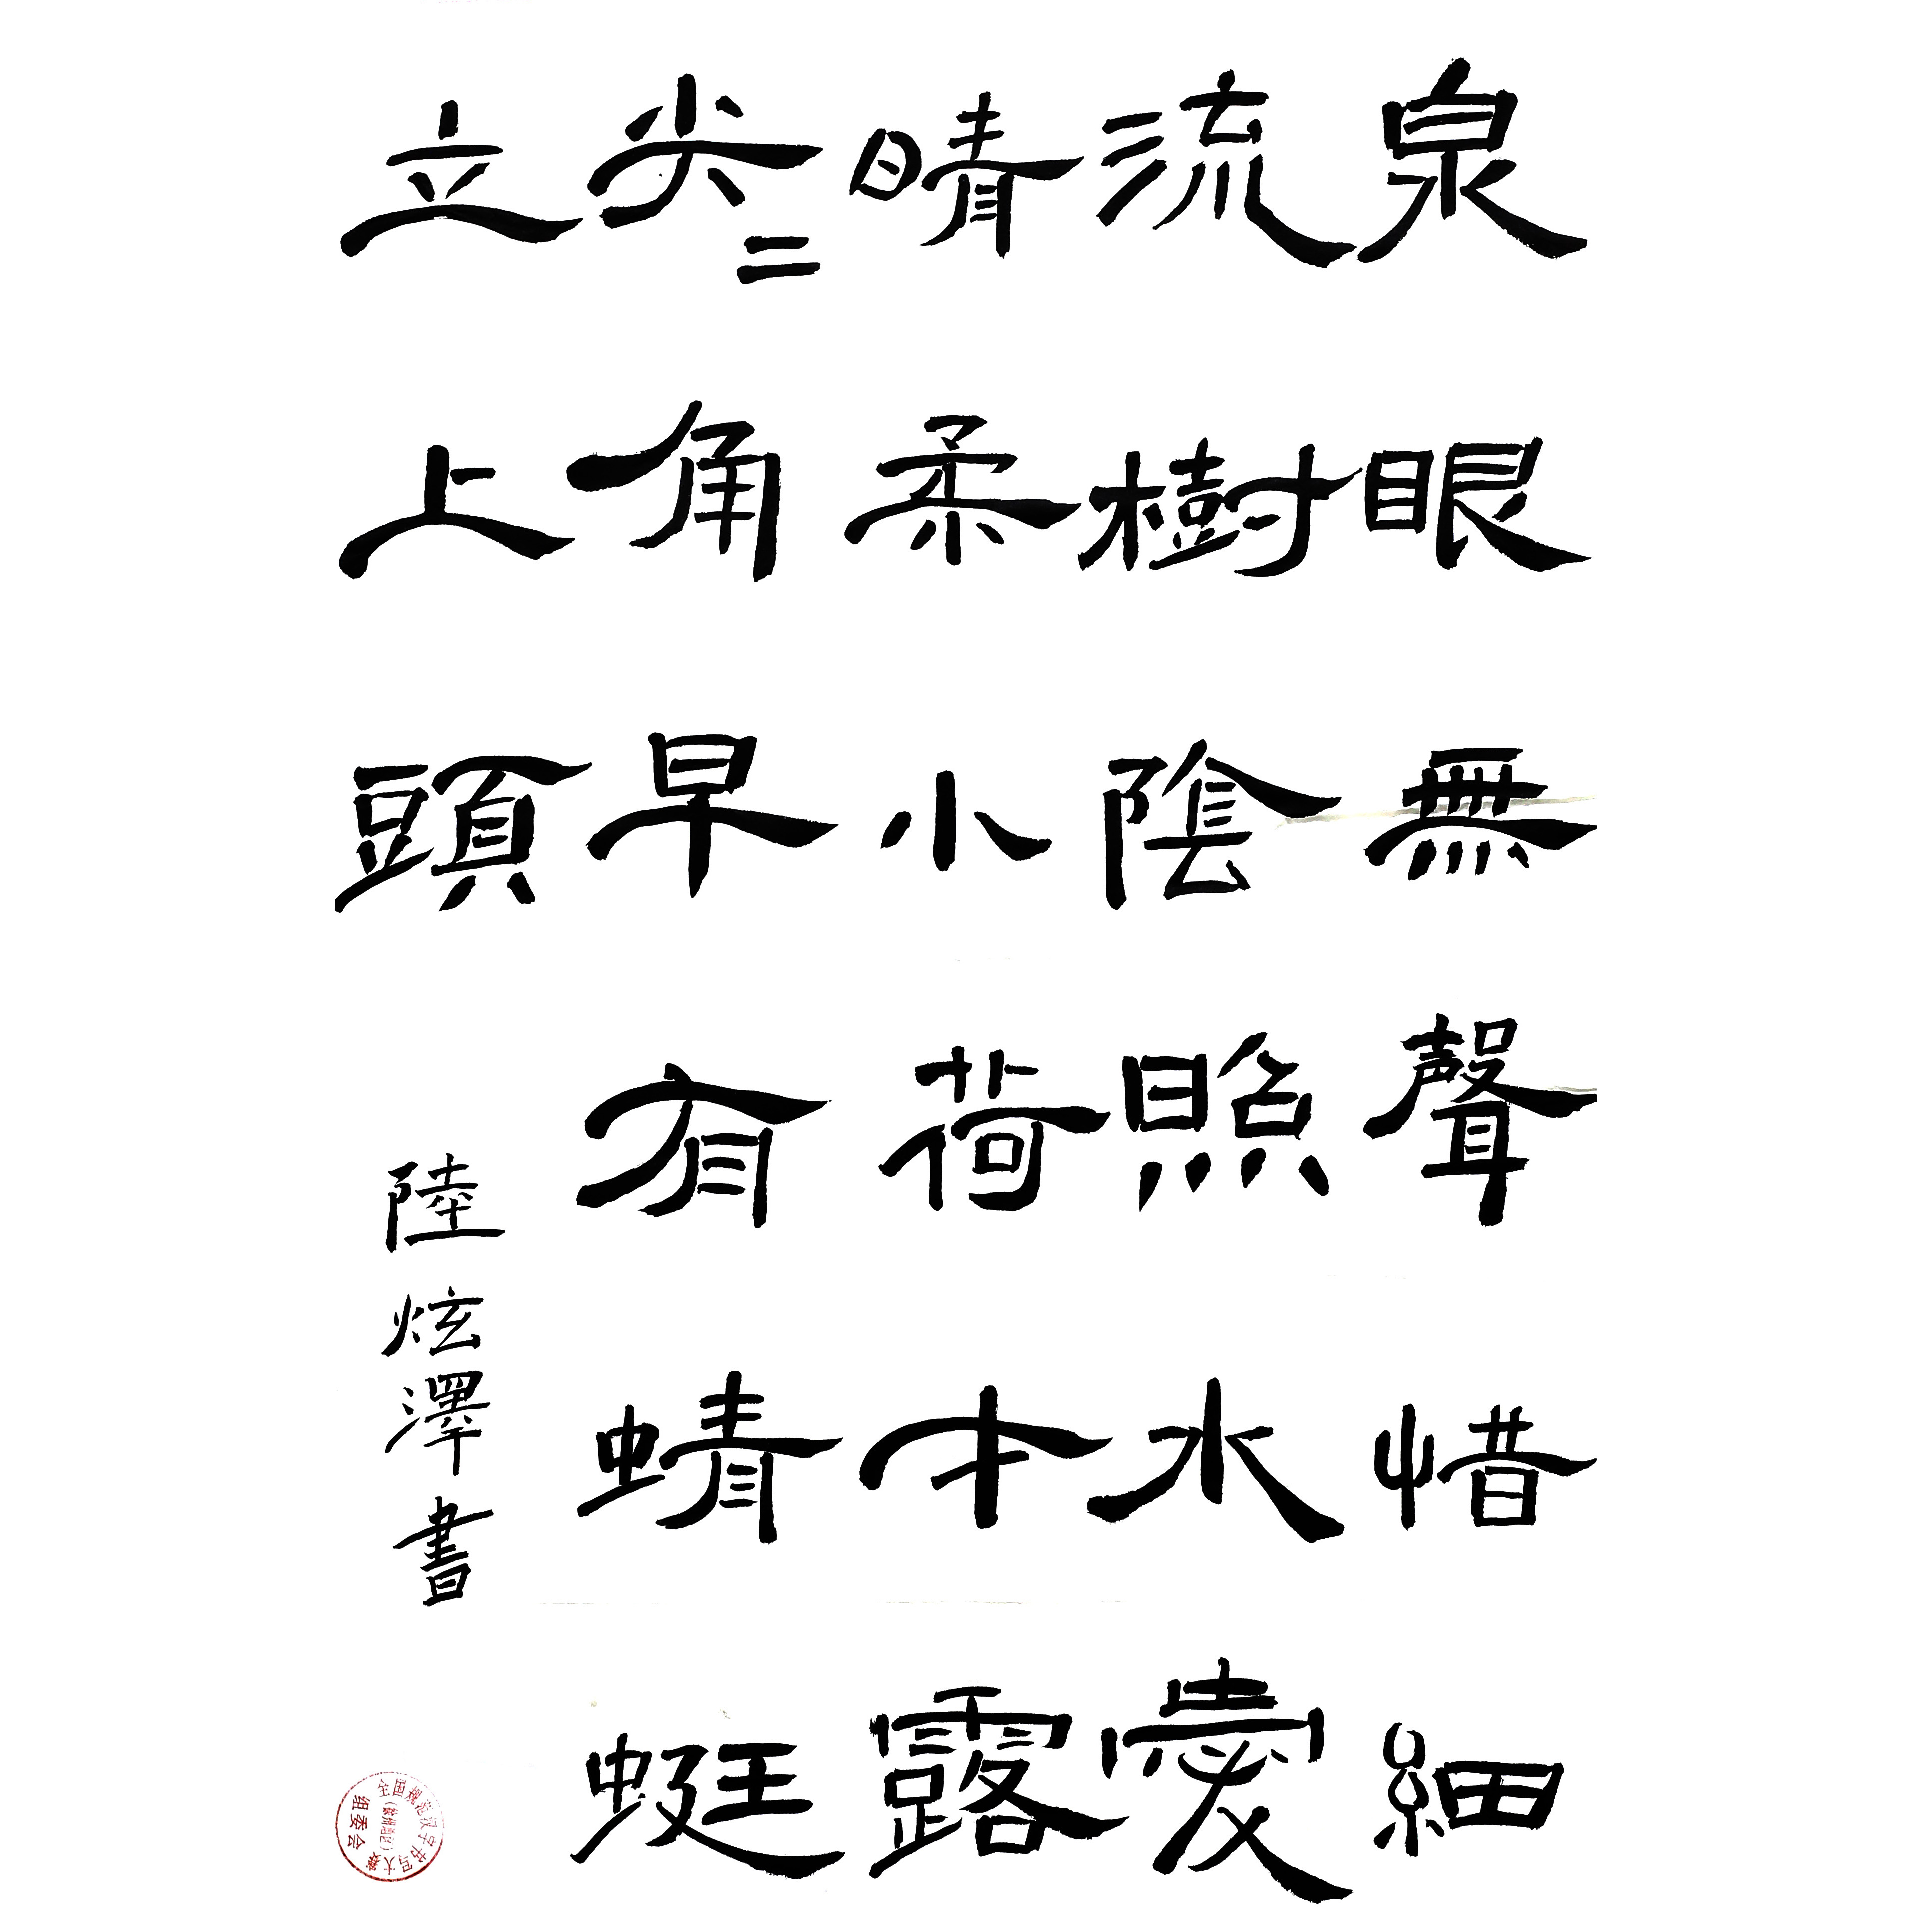 泉眼無聲惜細
流樹陰照水愛
晴柔小荷才露
尖〻角早有蜻蜓
立上頭
陸炫澤書
全国规范汉字书写大赛
组委会